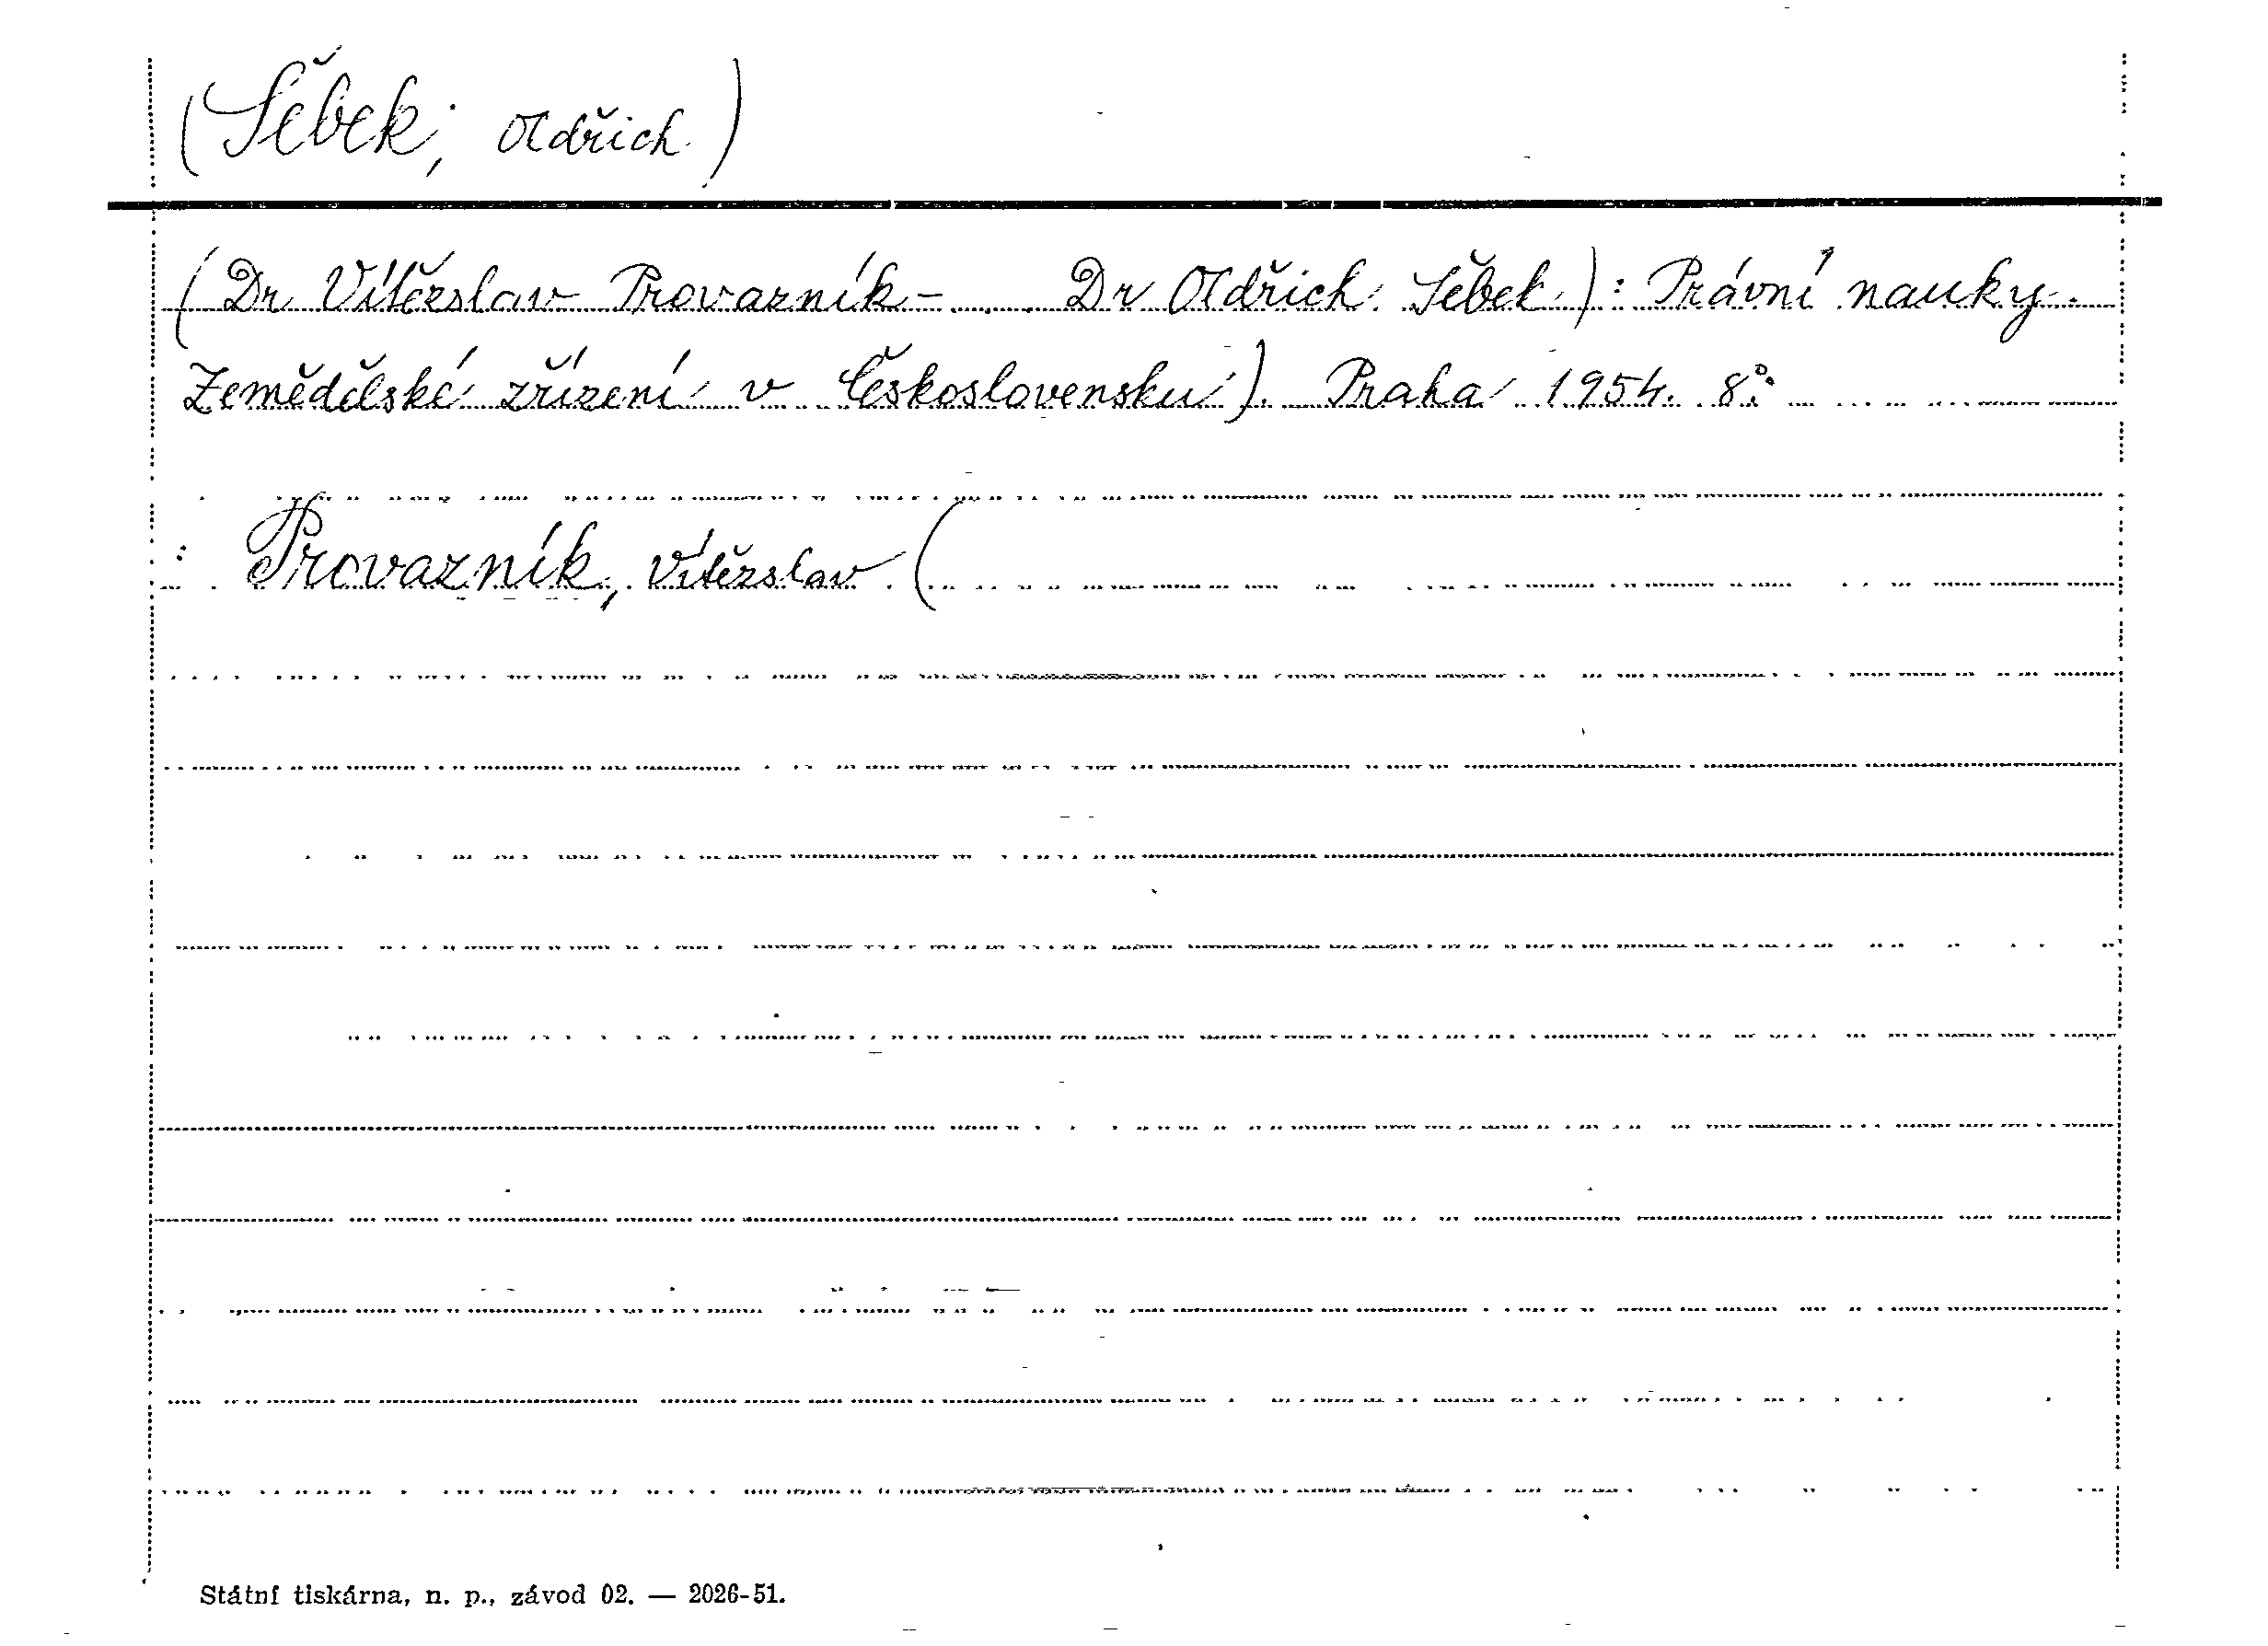 (Šebek, Oldřich)
(Dr Vítězslav Provazník - Dr Oldřich Šebek): Právní nauky.
Zemědělské zřízení v Československu). Praha 1954. 8°.
: Provazník, Vítězslav (
Státní tiskárna, n. p., závod 02. — 2026-51.